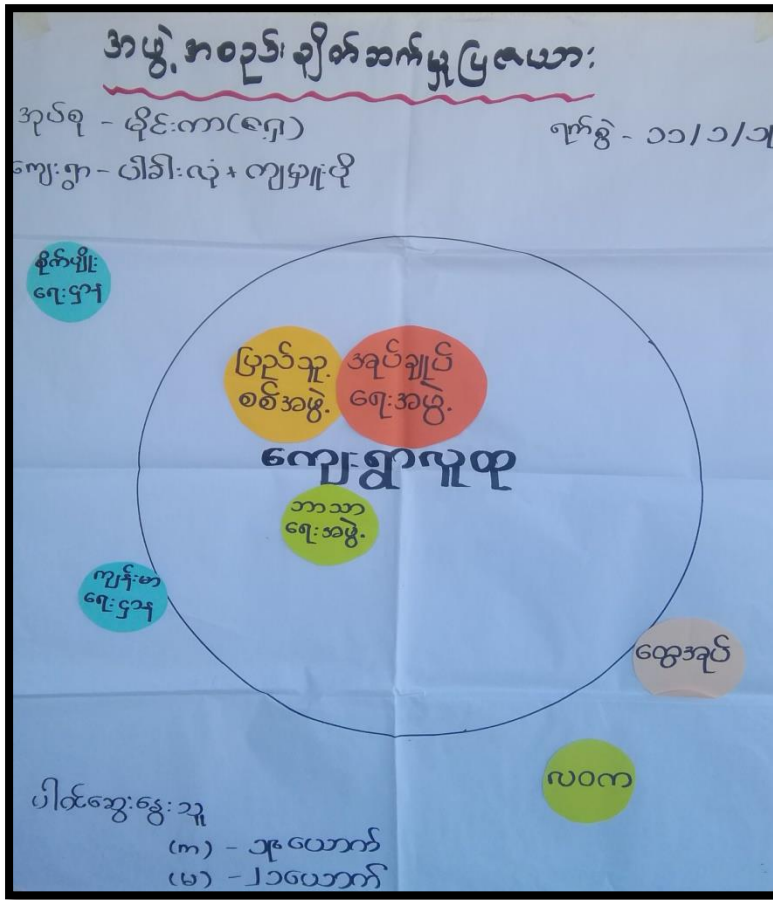 အဖွဲ့အစည်းချိတ်ဆက်မှုပြဇယား
အုပ်စု - မိုင်းကာ(ရှေ့)
ရက်စွဲ - ၁၁/၁/၁
ကျေးရွာ - ပါခါးလုံ + ကျမှူးပိုး
စိုက်ပျိုး
ရေးဌာန
ပြည်သူ့
စစ်အဖွဲ့
အုပ်ချုပ်
ရေးအဖွဲ့
ကျေးရွာလူထု
ဘာသာ
ရေးအဖွဲ့
ကျန်းမာ
ရေးဌာန
ထွေအုပ်
လဝက
ပါဝင်ဆွေးနွေးသူ
(က) - ၁၉ယောက်
(မ) - ၂၁ယောက်